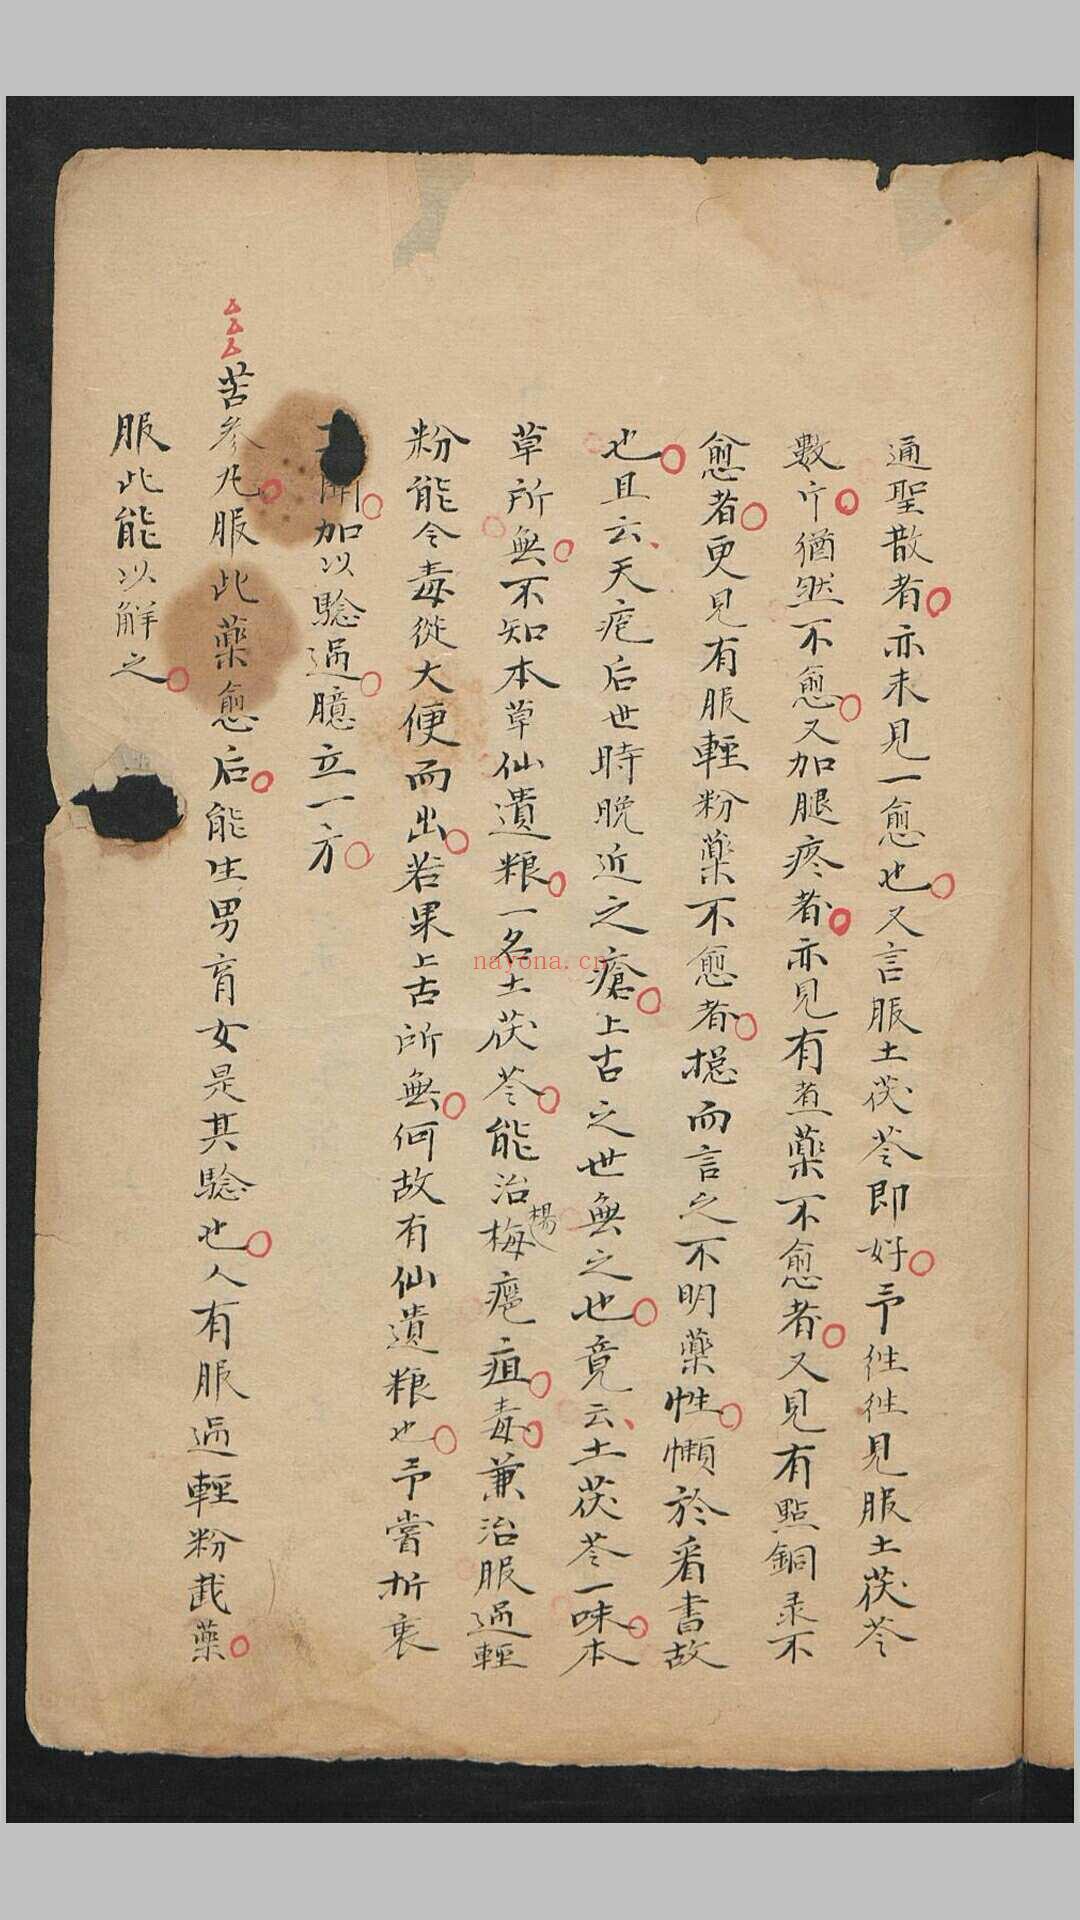 通聖散者亦未見一愈也又言服土茯苓即好予徃徃見服土茯苓
數斤猶然不愈又加腿疼者亦見有煮藥不愈者又見有點銅录不
愈者更見有服輕粉藥不愈者揔而言之不明藥性懶於看書故
也且云天疱后世時晚近之瘡上古之世無之也竟云土茯苓一味本
草所無不知本草仙遺粮一名土茯苓能治楊梅瘡疽毒兼治服過輕
粉能令毒從大便而出若果上古所無何故有仙遺粮也予嘗折衷
聞加以驗過臆立一方
苦參丸服此藥愈后能生男育女是其驗也人有服過輕粉截藥
服此能以解之
nayona.cn